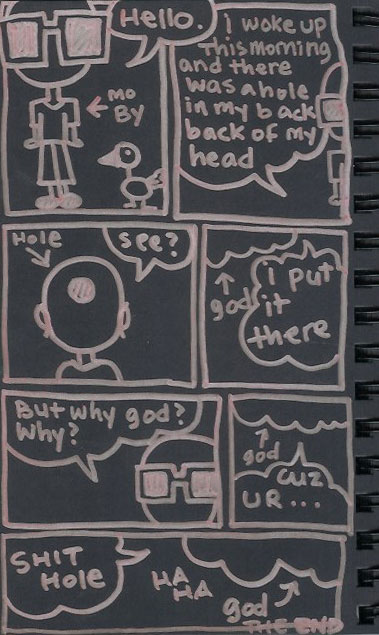 Hello.
MO
BY
I woke up
This morning
and there
was a hole
in my back
back of my
head
Hole
see?
god
I put
it
there
But why god?
Why?
god
cuz
UR...
SHIT
Hole
HA
HA
god
THE END